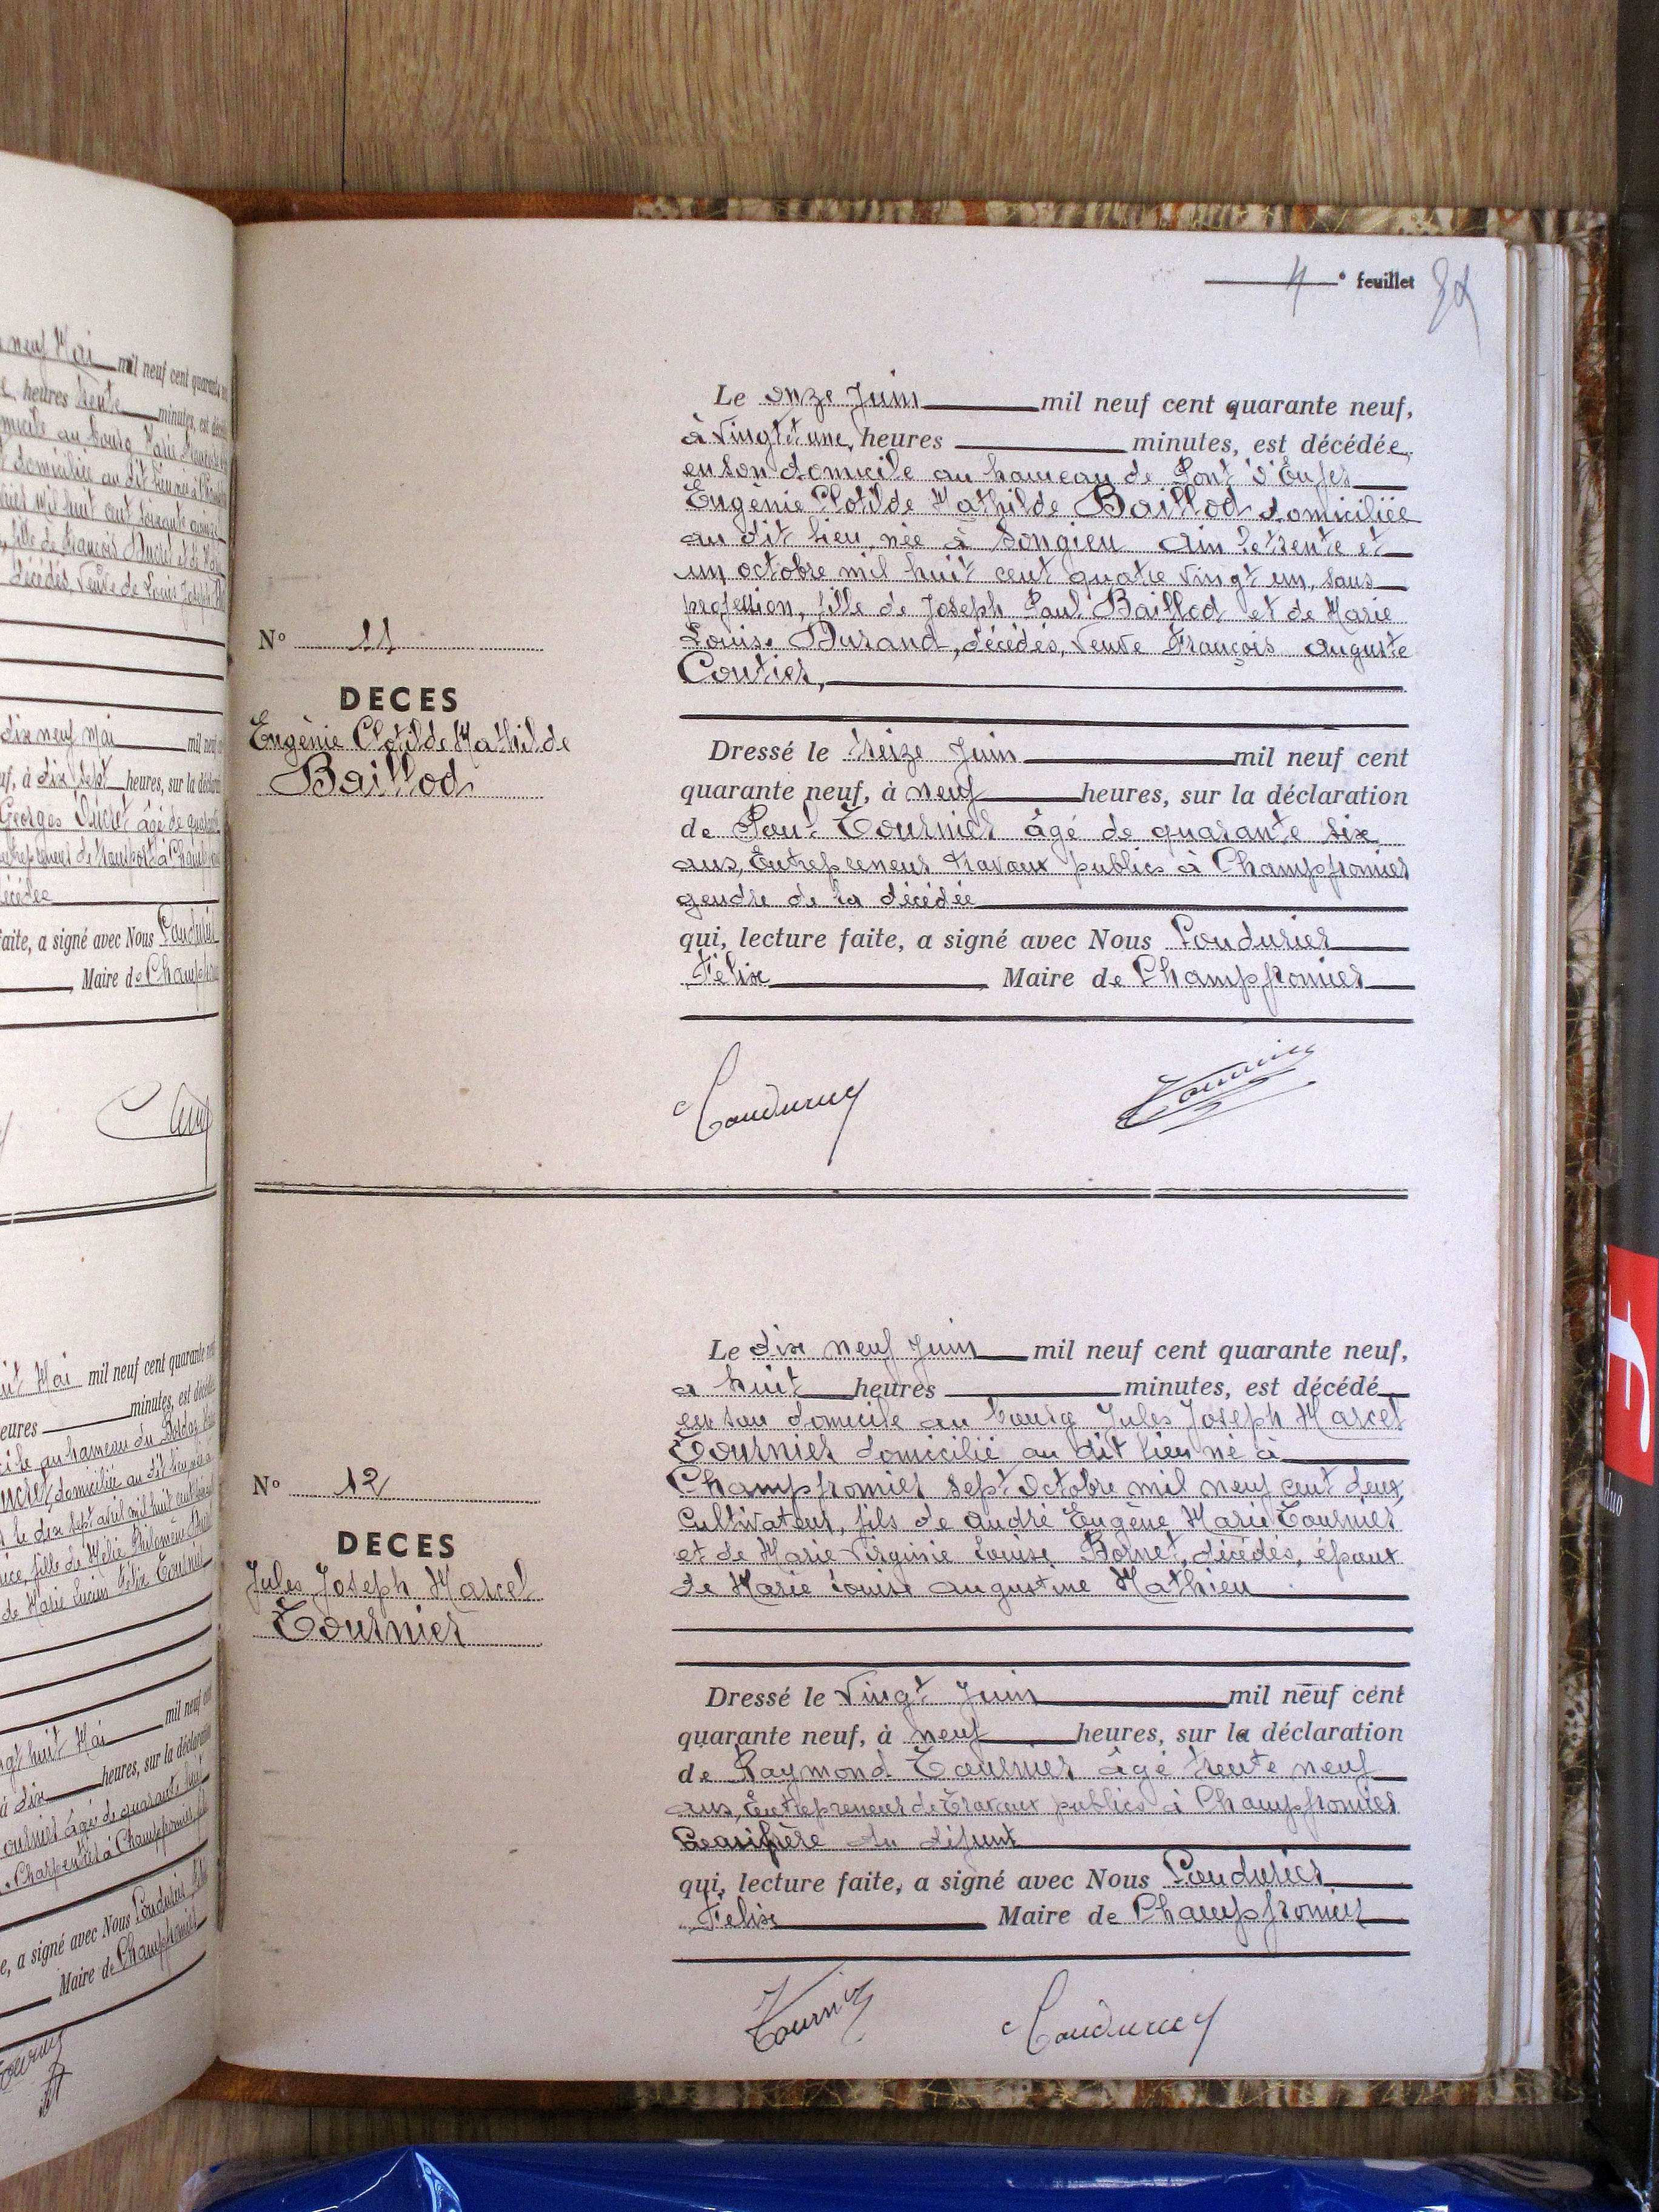 neuf Mai mil neuf cent quarante
heures trente minutes, est
domicile au bourg Marie
domiciliée au dit lieu née à
mil huit cent soixante
fille de François Ducret et de
décédés, Veuve de Louis Joseph
dix neuf Mai mil
à dix sept heures, sur la
Georges Ducret âgé de
décédée
faite, a signé avec Nous Coudurier
Maire de
4e feuillet 84
Le onze Juin mil neuf cent quarante neuf,
à Vingt et une heures minutes, est décédée
en son domicile au hameau de Pont d'Enfer
Eugènie Clotilde Mathilde Baillod domiciliée
au dit lieu, née à Songieu Ain le trente et
un octobre mil huit cent quatre vingt un, sans
profession, fille de Joseph Paul Baillod et de Marie
Louise Durand, décédés, Veuve François Auguste
Coutier,
N° 11
DECES
Eugènie Clotilde Mathilde
Baillod
Dressé le treize Juin mil neuf cent
quarante neuf, à neuf heures, sur la déclaration
de Paul Tournier âgé de quarante six
ans, Entrepreneur travaux publics à Champfromier
gendre de la décédée
qui, lecture faite, a signé avec Nous Coudurier
Félix Maire de Champfromier
Coudurier Tournier
Mai mil neuf cent quarante
heures minutes, est
au hameau du
domiciliée au dit lieu
le dix sept avril mil huit cent
fille de Philomène
de Marie Lucien Félix Tournier
huit Mai mil neuf
à dix heures, sur la
âgé de quarante
Charpentier à Champfromier
a signé avec Nous Coudurier
Maire de Champfromier
Le dix neuf Juin mil neuf cent quarante neuf,
a huit heures minutes, est décédé
en son domicile au bourg Jules Joseph Marcel
Tournier domicilié au dit lieu né à
Champfromier sept Octobre mil neuf cent deux,
Cultivateur, fils de André Eugène Marie Tournier
et de Marie Virginie Louise Bornet, décédés, époux
de Marie Louise Augustine Mathieu
N° 12
DECES
Jules Joseph Marcel
Tournier
Dressé le Vingt Juin mil neuf cent
quarante neuf, à neuf heures, sur la déclaration
de Raymond Tournier âgé trente neuf
ans, Entrepreneur de Travaux publics à Champfromier
frère du défunt
qui, lecture faite, a signé avec Nous Coudurier
Felix Maire de Champfromier
Tournier Coudurier